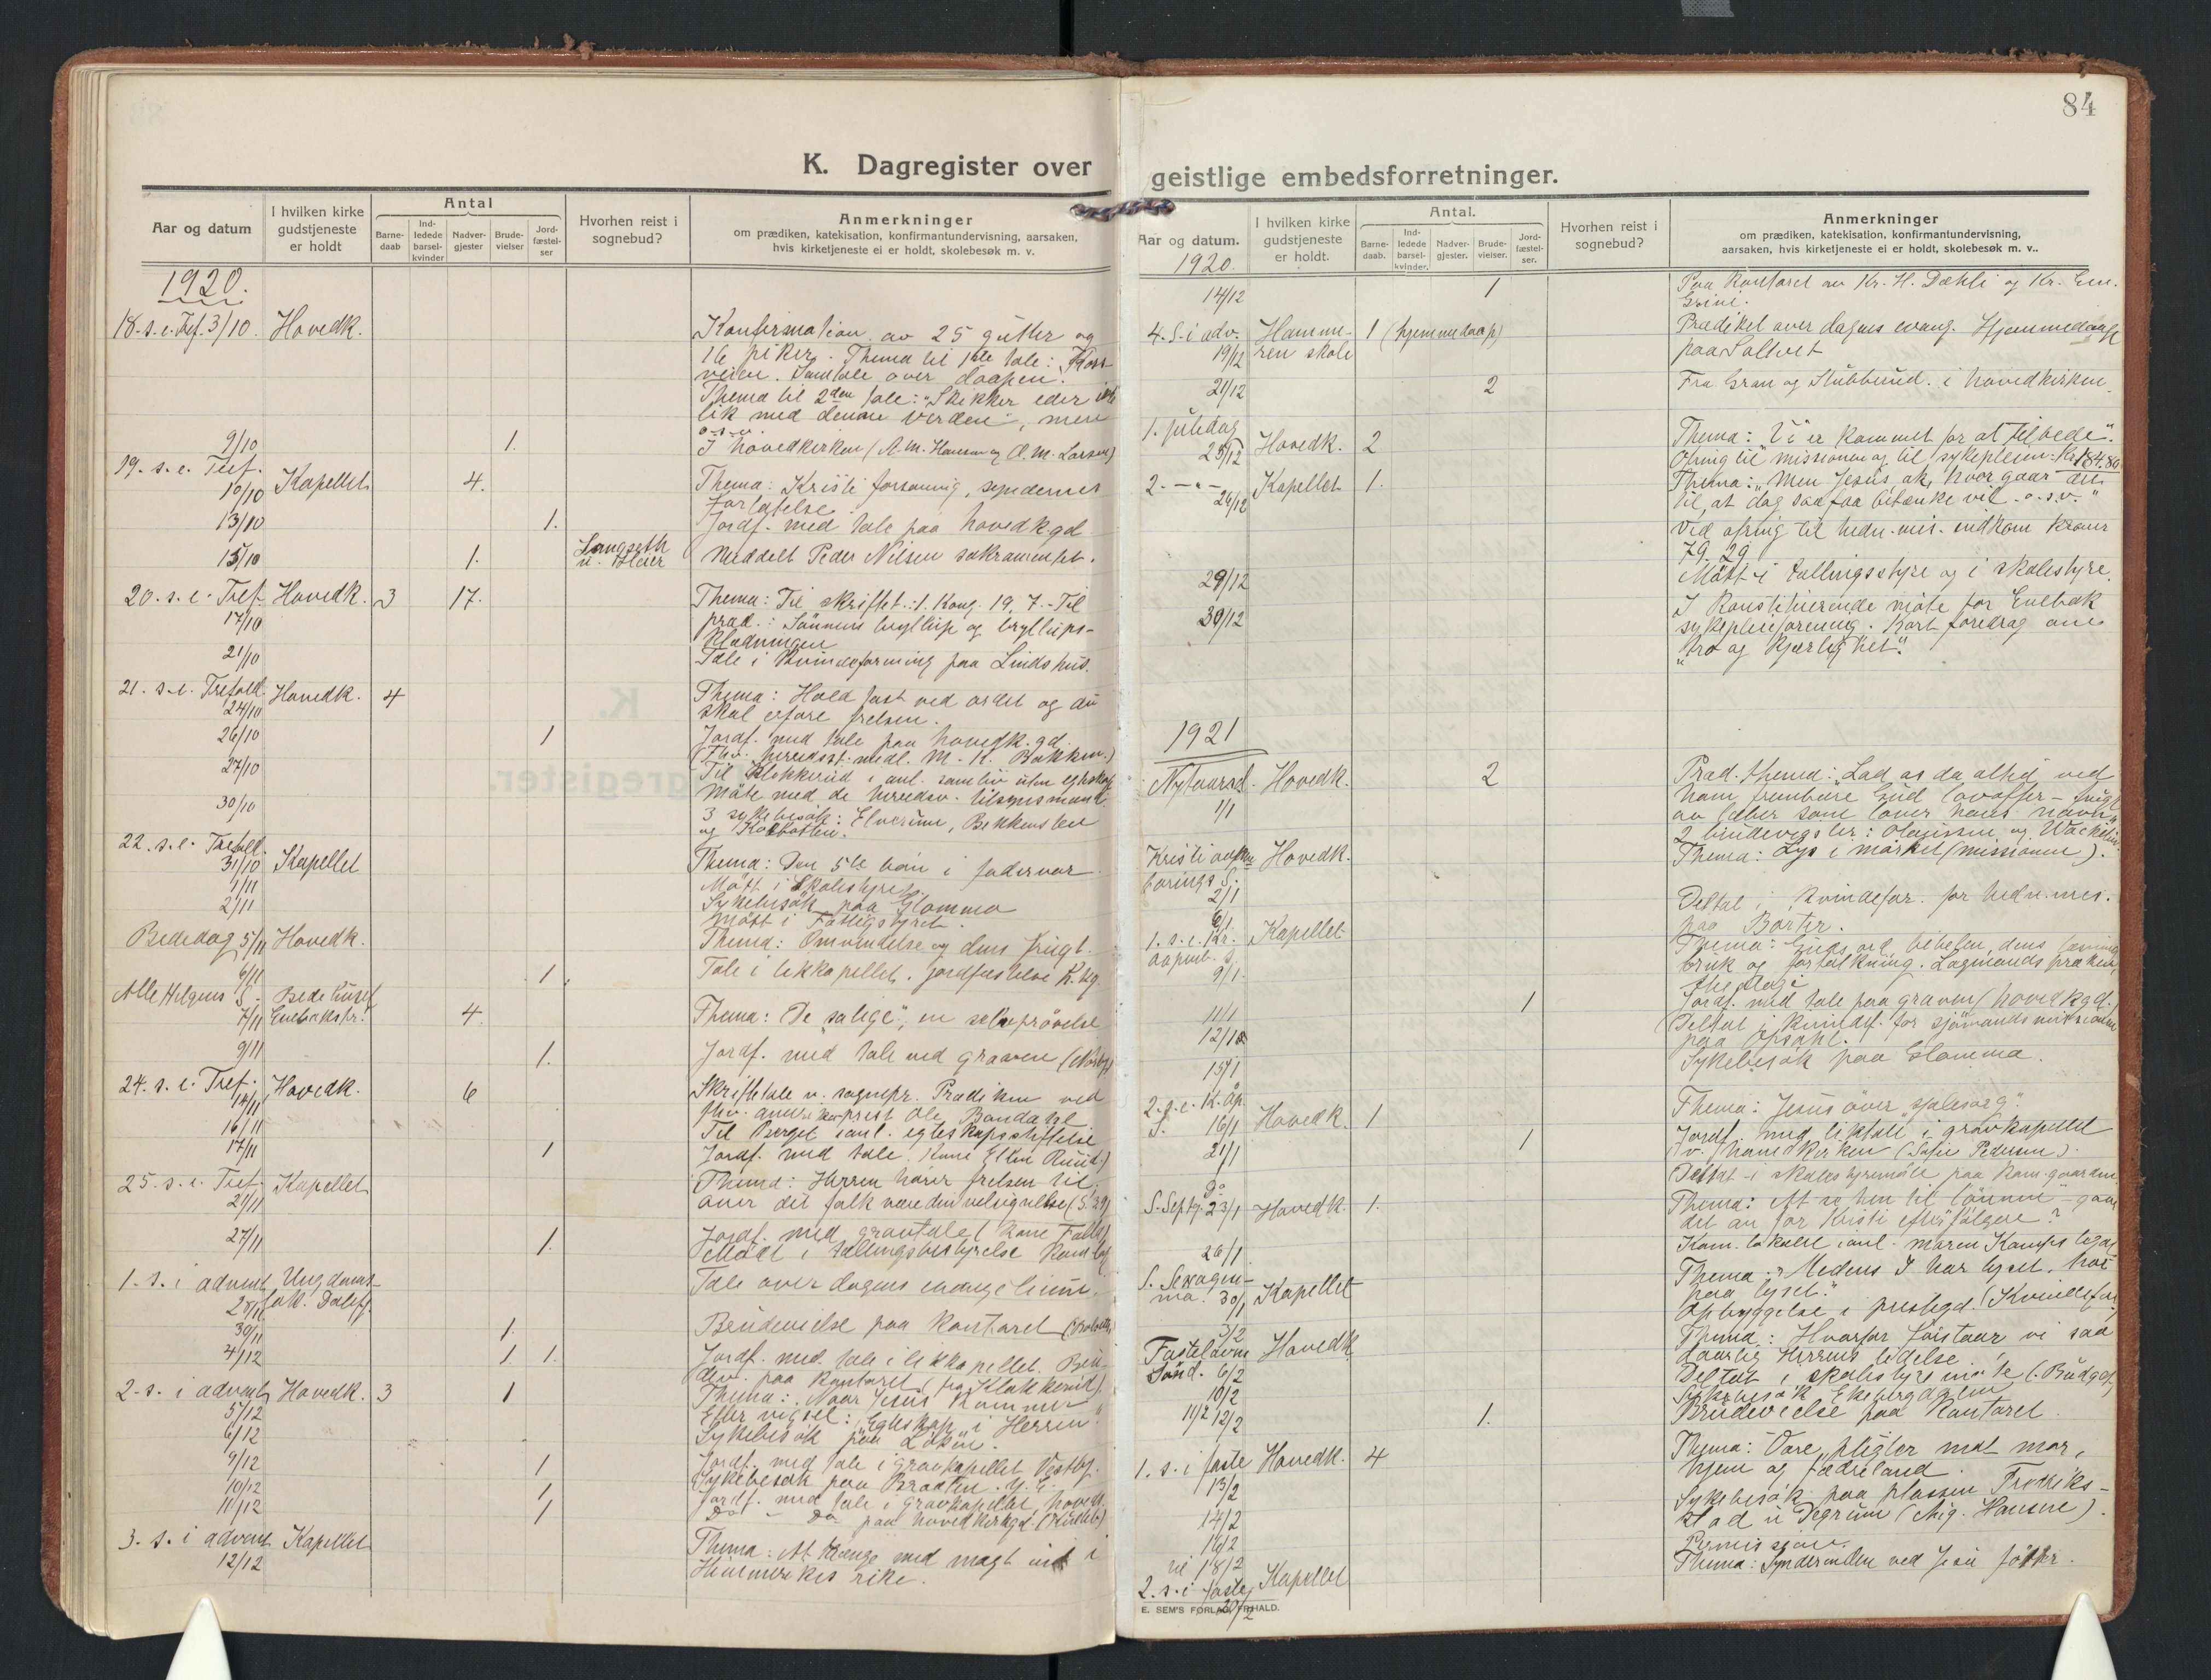 84
K. Dagregister over
Aar og datum
I hvilken kirke
gudstjeneste
er holdt
Antal
Barne-
daab
Ind-
ledede
barsel-
kvinder
Nadver-
gjester
Brude-
vielser
Jord-
fæstel-
ser
Hvorhen reist i
sognebud?
Anmerkninger
om prædiken, katekisation, konfirmantundervisning, aarsaken,
hvis kirketjeneste ei er holdt, skolebesøk m. v.
1920.
18. s. e. Tref. 3/10. Hovedk. Konfirmation av 25 gutter og
16 piker. Thema til 1ste tale: Kors-
veien. Samtale over daapen.
Thema til 2den tale: "Skikker eder ikke
lik med denne verden", men
o.s.v.
9/10 1. I hovedkirken (A. M. Hansen og O. M. Larsen)
19. s. e. Tref.
10/10 Kapellet 4. Thema: Kristi forsoning, syndernes
forlatelse.
13/10 1. Jordf. med tale paa hovedk.gd.
15/10 1. Langseth
u. Meddelt Peder Nilsen sakramentet.
20. s. e. Tref. Hovedk. 3 17. Thema: Til skriftet: 1. Kong. 19, 7. - Til
17/10 præd.: Sönnens bryllup og bryllups-
klædningen
21/10 Tale i kvindeforening paa Lindshus.
21. s. e. Trefold. Hovedk. 4 Thema: Hold fast ved ordet og du
24/10 skal erfare frelsen.
26/10 1 Jordf. med tale paa hovedk.gd.
(Fhv. herredsst. medl. M. K. Bakken.)
27/10 Til Klokkerud i anl. samliv uten egteskap
Möte med de herredsv. tilsynsmænd.
30/10 3 sykebesök: Elverum, Bekkensten
og Kolbotten.
22. s. e. Trefold.
31/10 Kapellet Thema: Den 5te bön i fadervor.
1/11 Mött i Skolestyret.
2/11 Sykebesök paa Glomma
Mött i Fattigstyret.
Bededag 5/11 Hovedk. Thema: Omvendelse og dens frugt.
6/11 1. Tale i likkapellet. Jordfæstelse K.
Alle Helgens S. Bedehuset
7/11 Enebakspr. 4. Thema: "De salige", en selvprövelse
9/11 1. Jordf. med tale ved graven
24. s. e. Tref. Hovedk. 6 Skriftetale v. sognepr. Prædiken ved
14/11 fhv. prest Ole Bondahl
16/11 Til Berget i anl. egteskapsstiftelse
17/11 1 Jordf. med tale. Kone Ellen Ruud.)
25. s. e. Tref. Kapellet Thema: Herren hörer frelsen til;
21/11 over dit folk være din velsignelse
27/11 1. Jordf. med gravtale
Mödt i tællingsbestyrelse
1. s. i advent Ungdoms-
28/11 lok. Dalefj. Tale over dagens evangelium.
30/11 1. Brudevielse paa kontoret
4/12 1. 1. Jordf. med tale i likkapellet. Bru-
dev. paa kontoret (fra Klokkerud).
2. s. i advent Hovedk. 3 1 Thema: Naar Jesus kommer
5/12 Efter vigsel: "Egteskap i Herren".
6/12 Sykebesök paa Löken.
9/12 1 Jordf. med tale i gravkapellet Vestby.
Sykebesök paa Braaten. Y. E.
10/12 1 Jordf. med tale i gravkapellet, hovedk.
11/12 1 Do - Do paa hovedkirkegd.
3. s. i advent Kapellet Thema: At trænge med magt ind i
12/12 Himmerikes rike.
geistlige embedsforretninger.
Aar og datum.
I hvilken kirke
gudstjeneste
er holdt.
Antal.
Barne-
daab.
Ind-
ledede
barsel-
kvinder.
Nadver-
gjester.
Brude-
vielser.
Jord-
fæstel-
ser.
Hvorhen reist i
sognebud?
Anmerkninger
om prædiken, katekisation, konfirmantundervisning,
aarsaken, hvis kirketjeneste ei er holdt, skolebesøk m. v..
1920.
14/12 1 Paa kontoret av Kr. H. Dæhli og Kr. Em.
Grini.
4. S. i adv. Hamme- 1 (hjemmedaap) Prædiket over dagens evang. Hjemmedaap
19/12 ren skole paa Saltvet
21/12 2 Fra Gran og Stubberud. i hovedkirken.
1. juledag
25/12 Hovedk. 2 Thema: "Vi er kommet for at tilbede".
Ofring til missionen og til sykepleien: Kr. 184.80
2. -"- 26/12 Kapellet 1. Thema: "Men Jesus, ak, hvor gaar det
til, at dog saa faa betænke vil o.s.v."
Ved ofring til hedn. mis. indkom kroner
79.29
29/12 Mött i tællingsstyre og i skolestyre.
30/12 I konstituerende möte for Enebak
sykepleieforening. Kort foredrag om
"tro og kjærlighet".
1921
Nytaarsd. Hovedk. 2 Præd. thema: "Lad os da altid ved
1/1 ham frembære Gud lovoffer - frugt
av læber som lover hans navn".
2 brudevigsler: Olaussen og
Kristi aapen- Hovedk. Thema: Lys i mörket (missionen).
barings S.
2/1
6/1 Deltat i kvindefor. for hedn. mis.
paa Börter.
1. s. e. Kr. Kapellet Thema: Guds ord, bibelen, dens
aapenb. S. bruk og fortolkning. Lægmands præken,
9/1 theologi
11/1 1 Jordf. med tale paa graven (hovedkgd.
12/1 Deltat i kvindef. for sjömandsmissionen
paa Opsahl.
15/1 Sykebesök paa Glomma.
2. s. e. K. Åp. Thema: Jesus över "sjælesorg".
S. 16/1 Hovedk. 1
21/1 1 Jordf. med liktale i gravkapellet
v. hovedkirken (Sofie Pedersen).
do Deltat i skolestyremöte paa kom.gaarden
S. Septg. 23/1 Hovedk. 1. Thema: At se hen til lönnen - gaar
det an for Kristi efterfölgere?
26/1 Kom. lokalet i anl. Maren Kamps legat
S. Sexagesi-
ma. 30/1 Kapellet Thema: "Medens I har lyset, tro
paa lyset".
3/2 Opbyggelse i prestegd. (Kvindefor.)
Fastelavns Hovedk. Thema: Hvorfor forstaar vi saa
Sönd. 6/2 daarlig Herrens ledelse.
10/2 Deltat i skolestyremöte (Budget)
11/2 Sykebesök Ekebergdalen
12/2 1. Brudevielse paa kontoret.
1. s. i faste Hovedk. 4 Thema: Vore pligter mot mor,
13/2 hjem og fædreland.
14/2 Sykebesök paa plassen Fredriks-
stad u. Degrum (Aug. Hansen).
16/2
til 18/2 Permission.
2. s. i faste Kapellet Thema: Synderinden ved Jesu fötter.
20/2
E. SEM'S FORLAG, FR.HALD.